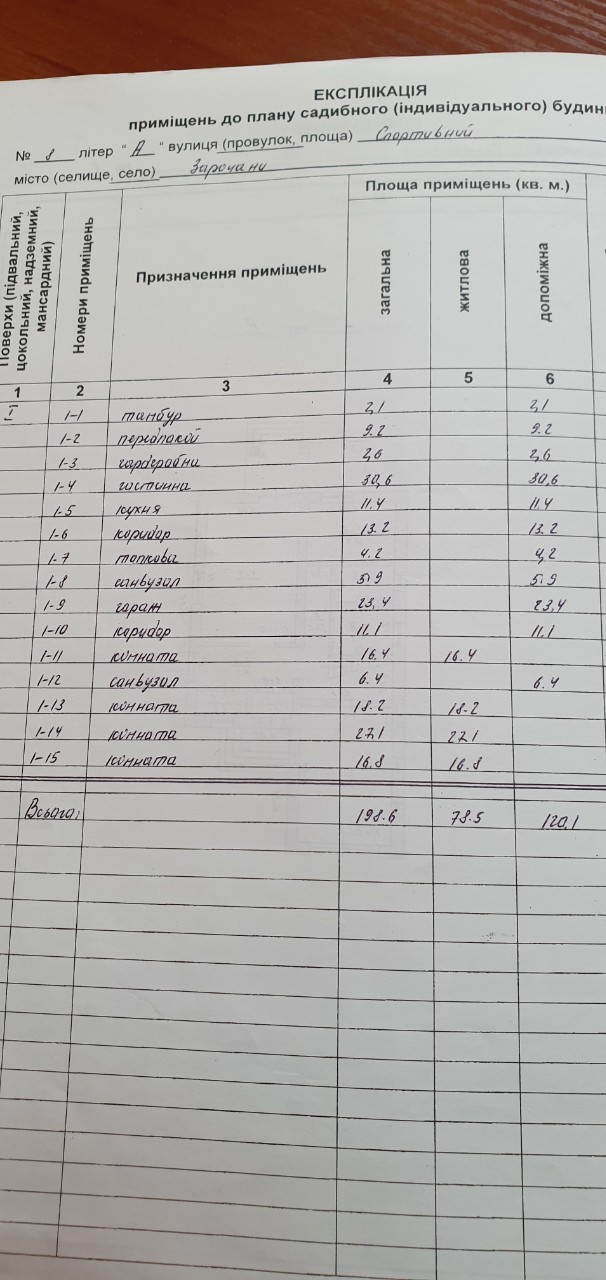 ЕКСПЛІКАЦІЯ
приміщень до плану садибного (індивідуального) будин
№ 8 літер "А" вулиця (провулок, площа) Спортивний
місто (селище, село) Зарочани
Поверхи (підвальний, цокольний, надземний, мансардний)
Номери приміщень
Призначення приміщень
Площа приміщень (кв. м.)
загальна
житлова
допоміжна
1 2 3 4 5 6
I 1-1 танбур 2,1 2,1
1-2 передпокой 9.2 9.2
1-3 гардеробна 2,6 2,6
1-4 гостинна 30,6 30,6
1-5 кухня 11.4 11.4
1-6 коридор 13.2 13.2
1-7 топкова 4.2 4,2
1-8 санвузол 5.9 5.9
1-9 гараж 23,4 23,4
1-10 коридор 11.1 11.1
1-11 кімната 16.4 16.4
1-12 санвузол 6.4 6.4
1-13 кімната 18.2 18.2
1-14 кімната 27.1 27.1
1-15 кімната 16.8 16.8
Всього: 198.6 78.5 120,1